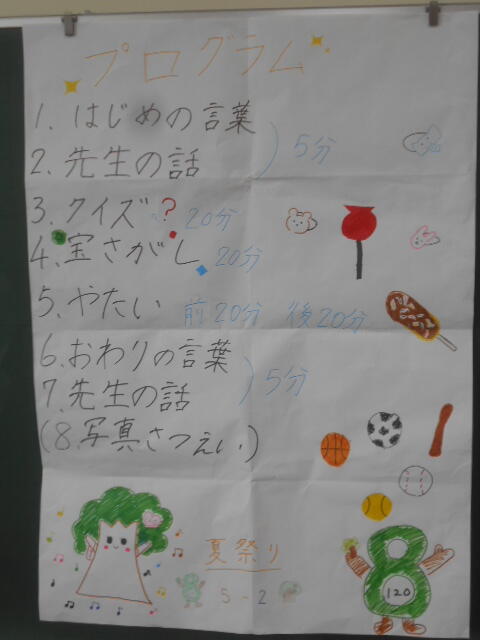 プログラム
1. はじめの言葉
2. 先生の話
5分
3. クイズ? 20分
4. 宝さがし 20分
5. やたい 前20分 後20分
6. おわりの言葉
7. 先生の話
5分
(8. 写真さつえい)
夏祭り
5-2
8
120